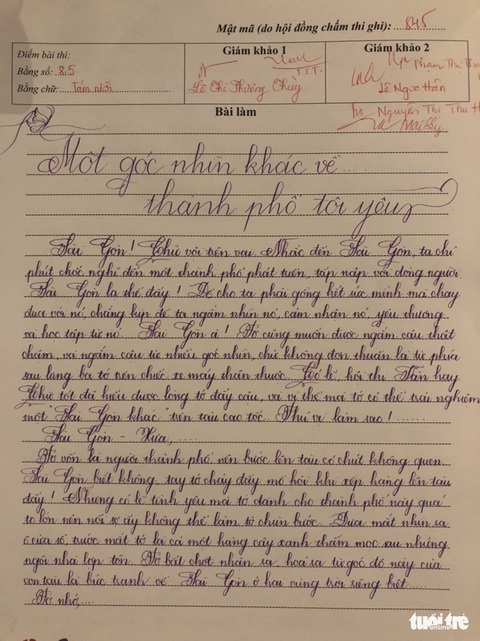 Mật mã (do hội đồng chấm thi ghi): 845
Điểm bài thi: Giám khảo 1 Giám khảo 2
Bằng số: 8.5
Bằng chữ: Tám rưỡi
Lê Chi Phương Thùy T.T.T. Lê Ngọc Hân
Nguyễn Thị Thu
Bài làm
Một góc nhìn khác về
thành phố tôi yêu
Sài Gòn! Chữ với tên vau. Nhắc đến Sài Gòn, ta chỉ
phút chốc nghĩ đến một thành phố phát triển, tấp nập với dòng người
Sài Gòn là thế đấy! Để cho ta phải gồng hết sức mình mà chạy
đua với nó, chẳng kịp để ta ngắm nhìn nó, cảm nhận nó, yêu thương
và học tập từ nó. Sài Gòn à! Tớ cũng muốn được ngắm cậu thật
chậm, và ngắm cậu từ nhiều góc nhìn, chứ không đơn thuần là từ phía
sau lưng ba tớ trên chiếc xe máy thân thuộc. Có lẽ, hội thi Văn hay
Chữ tốt đã hiểu được lòng tớ đấy cậu, và vì thế mà tớ có thể trải nghiệm
một "Sài Gòn khác" trên tàu cao tốc. Thú vị làm sao!
Sài Gòn - Xưa,
Tớ vốn là người thành phố, nên bước lên tàu có chút không quen.
Sài Gòn biết không, tay tớ chảy đầy mồ hôi khi xếp hàng lên tàu
đấy! Nhưng có lẽ tình yêu mà tớ dành cho thành phố này quá
to lớn nên nỗi sợ ấy không thể làm tớ chùn bước. Đưa mắt nhìn ra
ô cửa sổ, trước mắt tớ là cả một hàng cây xanh thẳm mọc sau những
ngôi nhà lợp tôn. Tớ bất chợt nhận ra, hoá ra từ góc độ này của
con tàu là bức tranh về Sài Gòn ở hai vùng trời riêng biệt.
Tớ nhớ,...
tuổi trẻ
online